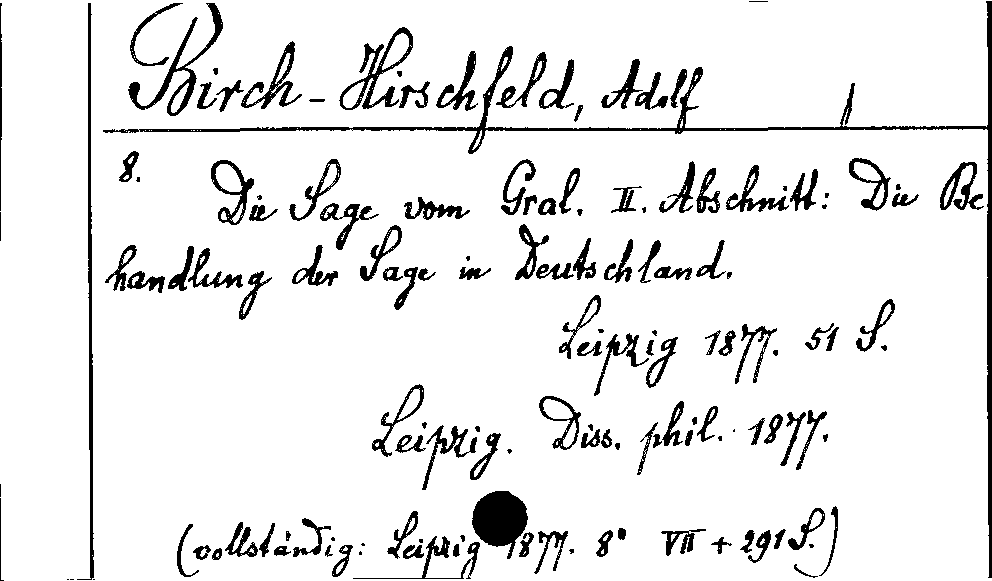 Birch-Hirschfeld, Adolf
8.
Die Sage vom Gral. II. Abschnitt: Die Be
handlung der Sage in Deutschland.
Leipzig 1877. 51 S.
Leipzig. Diss. phil. 1877.
(vollständig: Leipzig 1877. 8° VII + 291 S.)